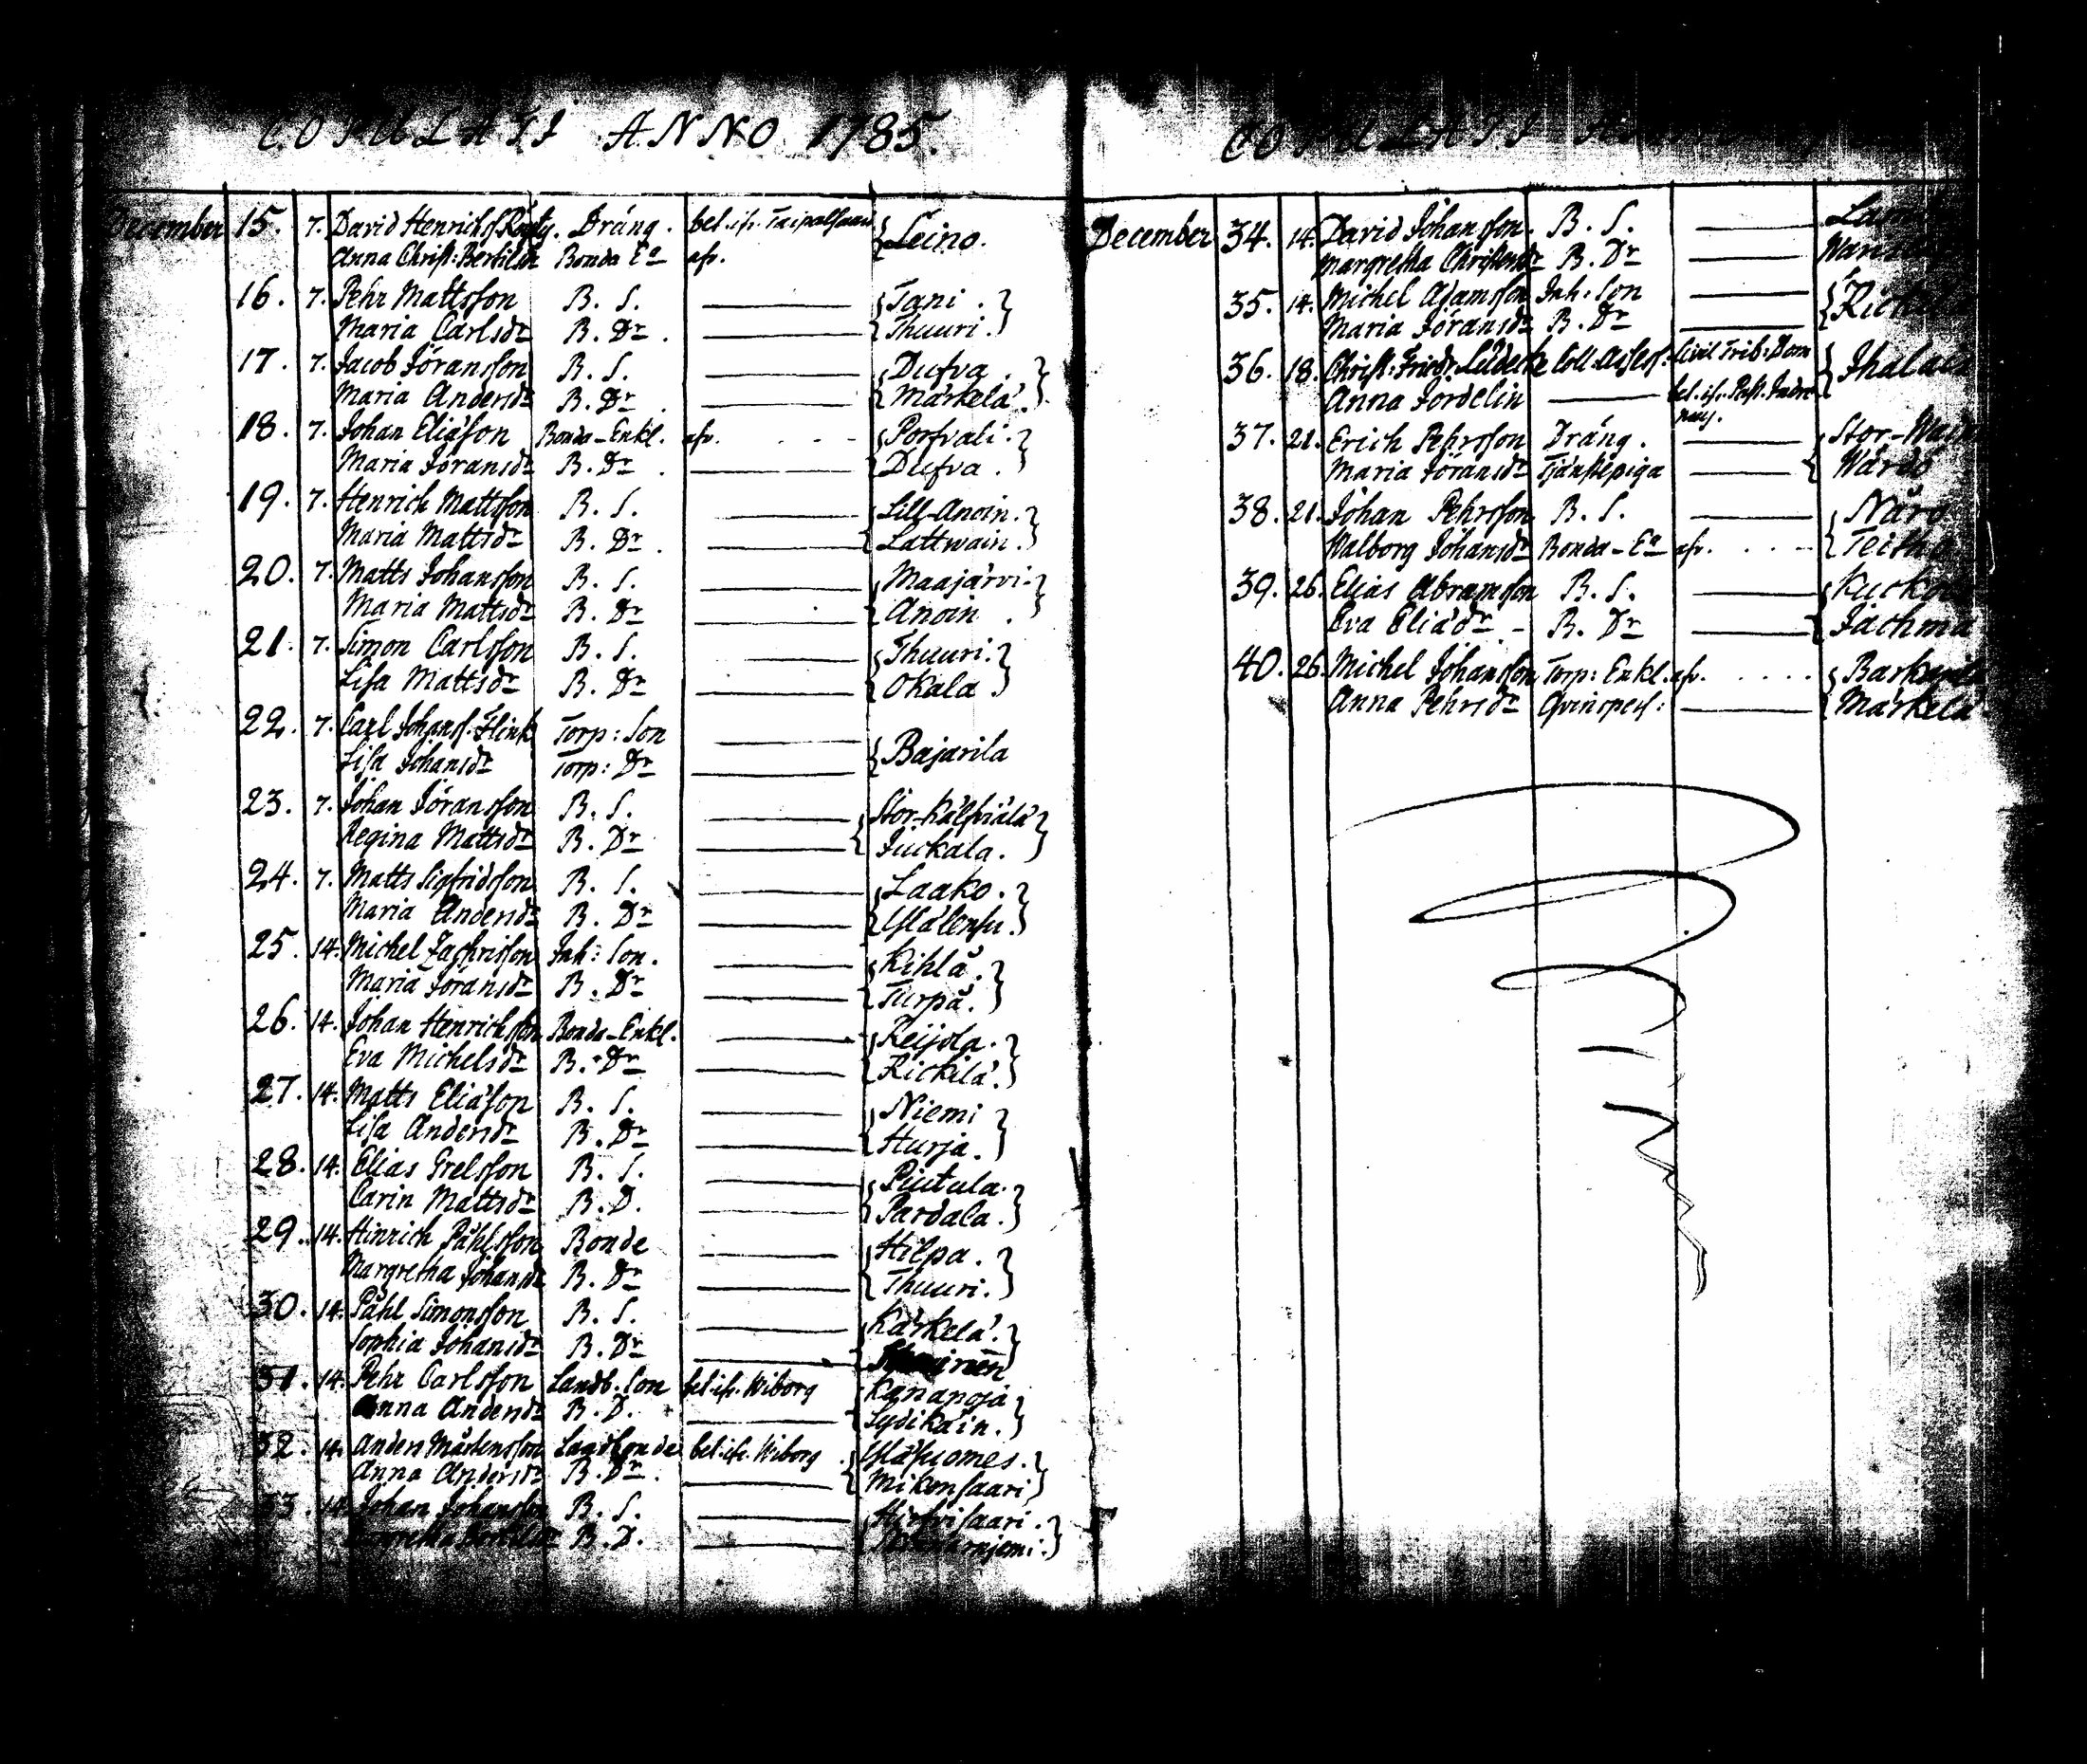 COPULATI ANNO 1785.
December 15. 7. David Henrichs. Dräng. bel. ifr. Taipalsaari
Anna Christ: Bertilsdr Bonda Ea afr. Leino.
16. 7. Pehr Mattsson B. S. Tani.
Maria Carlsdr B. Dr. Thuuri.
17. 7. Jacob Jöransson B. S. Dufva.
Maria Andersdr B. Dr. Märkelä.
18. 7. Johan Eliasson Bonda-Enkl. afr. Porfvali.
Maria Jöransdr B. Dr. Dufva.
19. 7. Henrich Mattsson B. S. Lill-Anoin.
Maria Mattsdr B. Dr. Lattwain.
20. 7. Matts Johansson B. S. Maajärvi.
Maria Mattsdr B. Dr Anoin.
21. 7. Simon Carlsson B. S. Thuuri.
Lisa Mattsdr B. Dr Okala.
22. 7. Carl Johans. Flink Torp: Son
Lisa Johansdr Torp: Dr Bajarila
23. 7. Johan Jöransson B. S. Stor-Kälfviälä
Regina Mattsdr B. Dr Juckala.
24. 7. Matts Sigfridsson B. S. Laako.
Maria Andersdr B. Dr
25. 14. Michel Zachrisson Inh: Son. Kihlä.
Maria Jöransdr B. Dr Turpä.
26. 14. Johan Henrichsson Bonda-Enkl. Reijola.
Eva Michelsdr B. Dr Rickilä.
27. 14. Matts Eliäson B. S. Niemi
Lisa Andersdr B. Dr Hurja.
28. 14. Elias Grelsson B. S. Piutula.
Carin Mattsdr B. D. Pardala.
29. 14. Hinrich Påhlsson Bonde Hilpa.
Margretha Johansdr B. Dr Thuuri.
30. 14. Påhl Simonsson B. S. Kärkelä.
Sophia Johansdr B. Dr
31. 14. Pehr Carlsson Landb. Son bel. ifr. Wiborg Kananoja
Anna Andersdr B. D. Lydikäin.
32. 14. Anders Mårtensson Landbonde bel. ifr. Wiborg
Anna Andersdr B. Dr. Mikonsaari
33. 14. Johan Johansson B. S. Hirfvisaari.
Margretha Bertilsdr B. D.
COPULATI
December 34. 14. David Johansson. B. S.
Margretha Christersdr B. Dr
35. 14. Michel Adamsson Inh: Son
Maria Jöransdr B. Dr
36. 18. Christ: Friedr. Lüdecke Coll. Assess. Civil Trib: Dom
Anna Fordelin bel. ifr. Pest.
37. 21. Erich Pehrsson Dräng.
Maria Jöransdr Tjänstepiga Wärdö
38. 21. Johan Pehrsson B. S.
Walborg Johansdr Bonda-Ea afr.
39. 26. Elias Abramsson B. S.
Eva Eliädr B. Dr
40. 26. Michel Johansson Torp: Enkl. afr.
Anna Pehrsdr Qvinspers: Märkelä